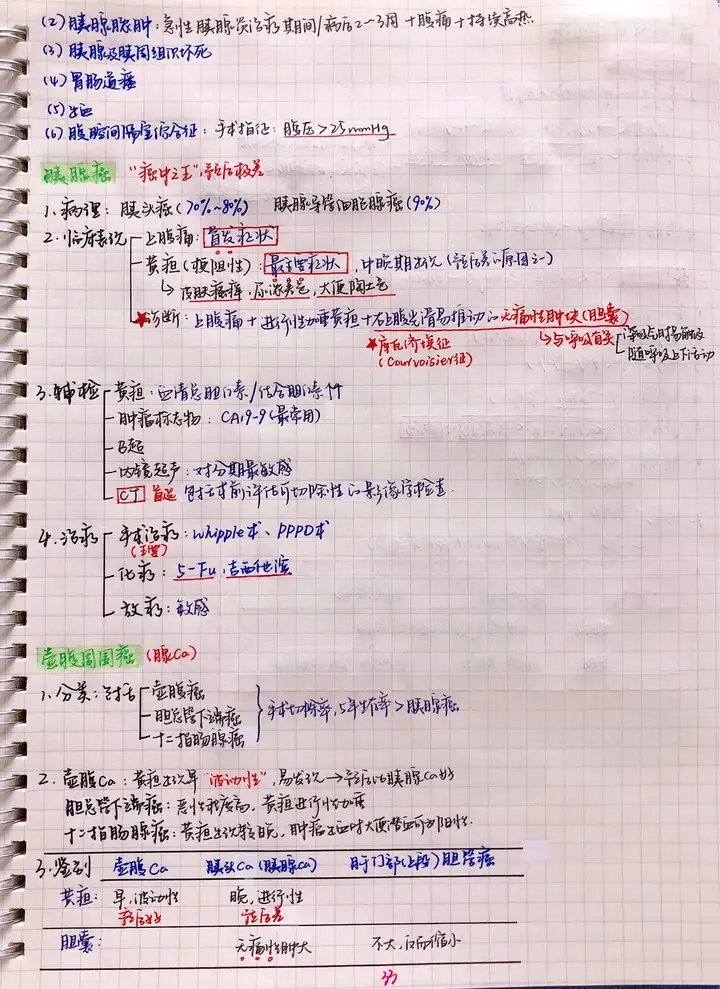 (2) 胰腺脓肿:急性胰腺炎治疗期间/病后2~3周+腹痛+持续高热
(3) 胰腺及胰周组织坏死
(4) 胃肠道瘘
(5) 出血
(6) 腹腔间隔室综合征:手术指征:腹压>25mmHg
胰腺癌 "癌中之王",预后极差
1、病理:胰头癌(70%~80%) 胰腺导管细胞腺癌(90%)
2、临床表现 上腹痛:首发症状
黄疸(梗阻性):最主要症状,中晚期出现(预后差的原因之一)
↳ 皮肤瘙痒,尿浓茶色,大便陶土色
★诊断:上腹痛+进行性加重黄疸+右上腹光滑易推动的无痛性肿块(胆囊)
★库瓦济埃征 ↳与呼吸有关 深吸气时易触及
(Courvoisier征) 随呼吸上下活动
3、辅检 黄疸:血清总胆红素/结合胆红素↑
肿瘤标志物:CA19-9(最常用)
B超
内镜超声:对分期最敏感
CT 首选 包括术前评估可切除性的影像学检查.
4、治疗 手术治疗:whipple术、PPPD术
(主要)
化疗:5-Fu,吉西他滨
放疗:敏感
壶腹周围癌 (腺Ca)
1、分类:包括 壶腹癌
胆总管下端癌 手术切除率,5年生存率>胰腺癌
十二指肠腺癌
2、壶腹Ca:黄疸出现早"波动性",易发现→预后比胰腺Ca好
胆总管下端癌:恶性程度高,黄疸进行性加重
十二指肠腺癌:黄疸出现较晚,肿瘤出血时大便潜血可为阳性.
3、鉴别 壶腹Ca 胰头Ca(胰腺Ca) 肝门部(上段)胆管癌
黄疸: 早,波动性 晚,进行性
预后好 预后差
胆囊: 无痛性肿大 不大,反而缩小